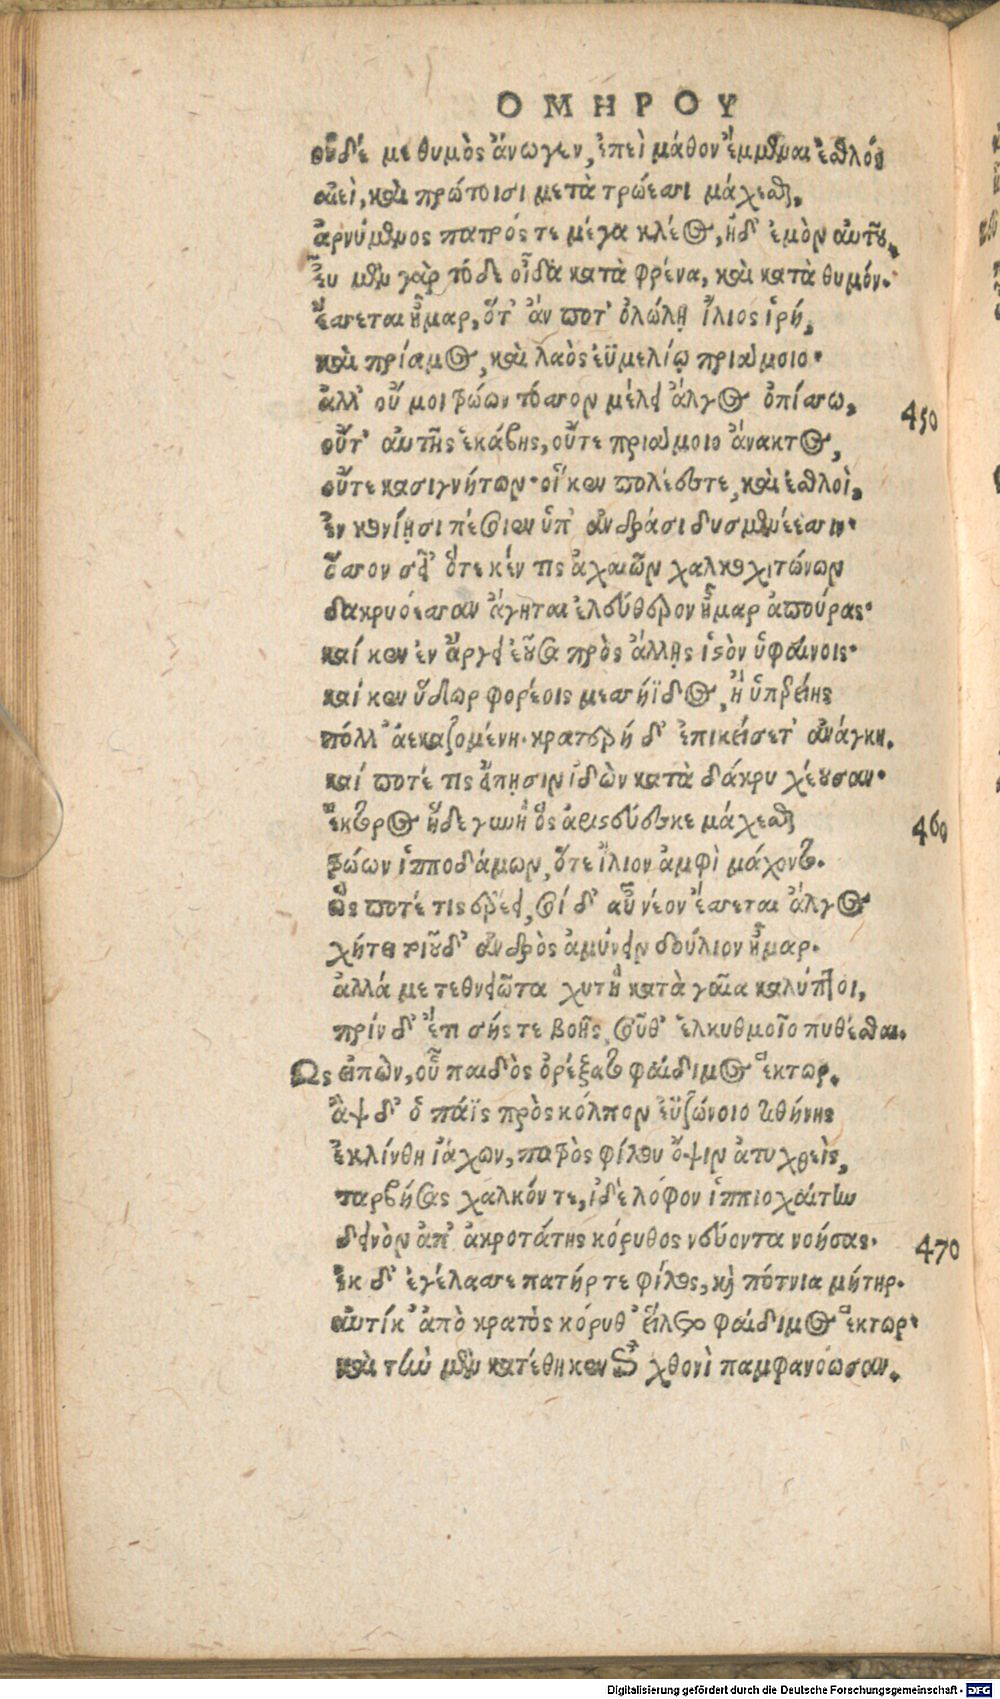 ΟΜΗΡΟΥ
οὐδέ με θυμὸς ἄνωγεν, ἐπεὶ μάθον ἔμμεναι ἐσθλός
αἰεὶ, καὶ πρώτοισι μετὰ τρώεσσι μάχεσθαι,
ἀρνύμενος πατρός τε μέγα κλέος, ἠδ' ἐμὸν αὐτοῦ.
εὖ μὲν γὰρ τόδε οἶδα κατὰ φρένα, καὶ κατὰ θυμόν.
ἔσσεται ἦμαρ, ὅτ' ἄν ποτ' ὀλώλῃ ἴλιος ἱρή,
καὶ πρίαμος, καὶ λαὸς ἐϋμελίῳ πριάμοιο.
ἀλλ' οὔ μοι τρώων τόσσον μέλει ἄλγος ὀπίσσω, 450
οὔτ' αὐτῆς ἑκάβης, οὔτε πριάμοιο ἄνακτος,
οὔτε κασιγνήτων· οἵ κεν πολέες τε, καὶ ἐσθλοὶ,
ἐν κονίῃσι πέσοιεν ὑπ' ἀνδράσι δυσμενέεσσιν·
ὅσσον σεῖ' ὅτε κέν τις ἀχαιῶν χαλκοχιτώνων
δακρυόεσσαν ἄγηται ἐλεύθερον ἦμαρ ἀπούρας·
καί κεν ἐν ἄργει ἐοῦσα πρὸς ἄλλης ἱστὸν ὑφαίνοις·
καί κεν ὕδωρ φορέοις μεσσηΐδος, ἢ ὑπερείης
πόλλ' ἀεκαζομένη· κρατερὴ δ' ἐπικείσετ' ἀνάγκη.
καί ποτέ τις εἴπησιν ἰδὼν κατὰ δάκρυ χέουσαν·
ἕκτορος ἥδε γυνὴ ὃς ἀριστεύεσκε μάχεσθαι 460
τρώων ἱπποδάμων, ὅτε ἴλιον ἀμφὶ μάχοντο.
ὥς ποτέ τις ἐρέει, σοί δ' αὖ νέον ἔσσεται ἄλγος
χήτει τοιοῦδ' ἀνδρὸς ἀμύνειν δούλιον ἦμαρ.
ἀλλά με τεθνειῶτα χυτὴ κατὰ γαῖα καλύπτοι,
πρίν δ' ἔτι σῆς τε βοῆς, σοῦθ' ἑλκυθμοῖο πυθέσθαι.
Ὣς εἰπὼν, οὗ παιδὸς ὀρέξατο φαίδιμος ἕκτωρ.
ἂψ δ' ὁ πάϊς πρὸς κόλπον ἐϋζώνοιο τιθήνης
ἐκλίνθη ἰάχων, πατρὸς φίλου ὄψιν ἀτυχθεὶς,
ταρβήσας χαλκόν τε, ἰδὲ λόφον ἱππιοχαίτην
δεινὸν ἀπ' ἀκροτάτης κόρυθος νεύοντα νοήσας. 470
ἐκ δ' ἐγέλασσε πατήρ τε φίλος, καὶ πότνια μήτηρ.
αὐτίκ' ἀπὸ κρατὸς κόρυθ' εἵλετο φαίδιμος ἕκτωρ·
καὶ τὴν μὲν κατέθηκεν ἐπὶ χθονὶ παμφανόωσαν.
Digitalisierung gefördert durch die Deutsche Forschungsgemeinschaft - DFG